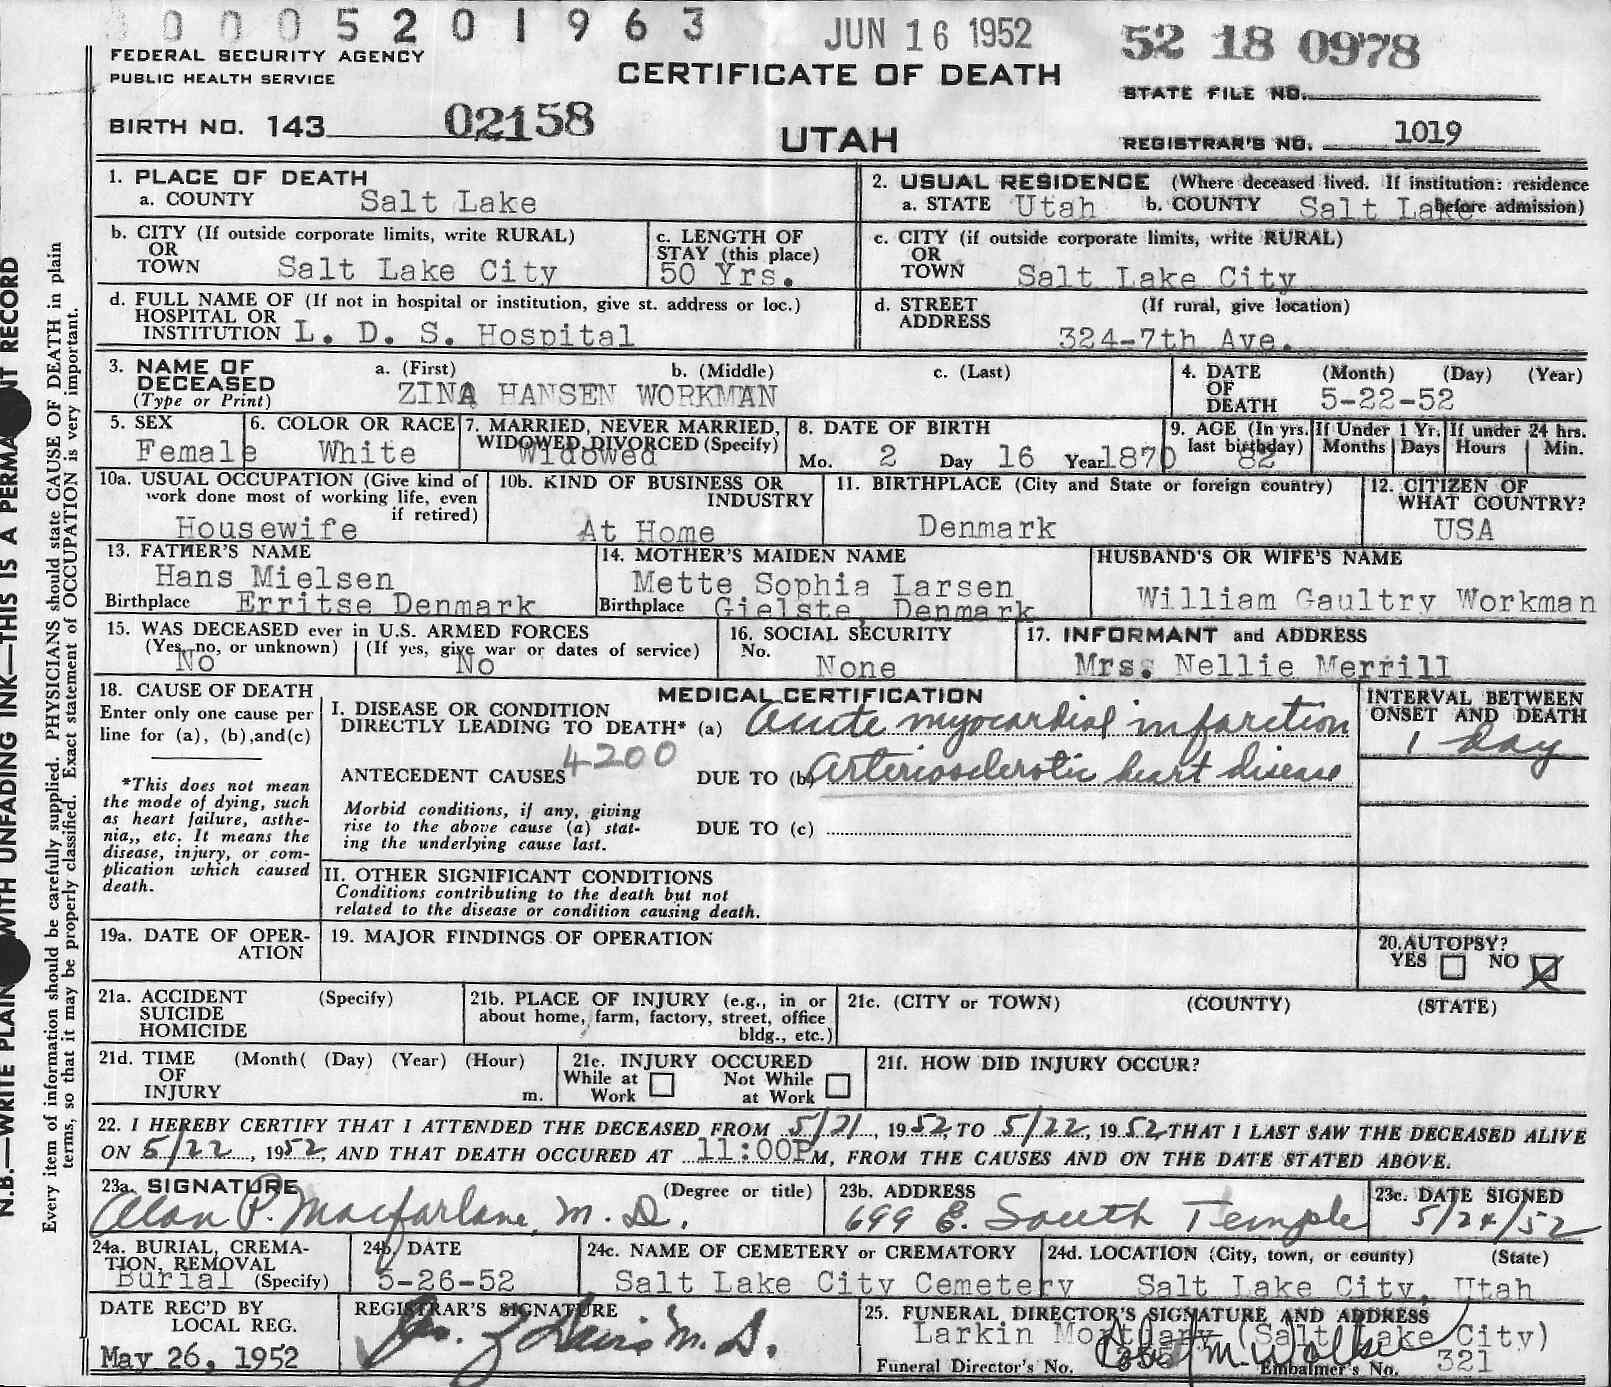 0 0 0 5 2 0 1 9 6 3 JUN 16 1952 52 18 0978
FEDERAL SECURITY AGENCY
PUBLIC HEALTH SERVICE
CERTIFICATE OF DEATH
STATE FILE NO.
BIRTH NO. 143 02158
UTAH
REGISTRAR'S NO. 1019
N.B.—WRITE PLAIN WITH UNFADING INK—THIS IS A PERMA NT RECORD
Every item of information should be carefully supplied. PHYSICIANS should state CAUSE OF DEATH in plain
terms, so that it may be properly classified. Exact statement of OCCUPATION is very important.
1. PLACE OF DEATH
a. COUNTY Salt Lake
2. USUAL RESIDENCE (Where deceased lived. If institution: residence
before admission)
a. STATE Utah b. COUNTY Salt Lake
b. CITY (If outside corporate limits, write RURAL)
OR
TOWN Salt Lake City
c. LENGTH OF
STAY (this place)
50 Yrs.
c. CITY (if outside corporate limits, write RURAL)
OR
TOWN Salt Lake City
d. FULL NAME OF (If not in hospital or institution, give st. address or loc.)
HOSPITAL OR
INSTITUTION L. D. S. Hospital
d. STREET (If rural, give location)
ADDRESS
324-7th Ave.
3. NAME OF a. (First) b. (Middle) c. (Last)
DECEASED
(Type or Print) ZINA HANSEN WORKMAN
4. DATE (Month) (Day) (Year)
OF
DEATH 5-22-52
5. SEX
Female
6. COLOR OR RACE
White
7. MARRIED, NEVER MARRIED,
WIDOWED, DIVORCED (Specify)
Widowed
8. DATE OF BIRTH
Mo. 2 Day 16 Year 1870
9. AGE (In yrs.
last birthday)
82
If Under 1 Yr.
Months Days
If under 24 hrs.
Hours Min.
10a. USUAL OCCUPATION (Give kind of
work done most of working life, even
if retired)
Housewife
10b. KIND OF BUSINESS OR
INDUSTRY
At Home
11. BIRTHPLACE (City and State or foreign country)
Denmark
12. CITIZEN OF
WHAT COUNTRY?
USA
13. FATHER'S NAME
Hans Mielsen
Birthplace Erritse Denmark
14. MOTHER'S MAIDEN NAME
Mette Sophia Larsen
Birthplace Gielste, Denmark
HUSBAND'S OR WIFE'S NAME
William Gaultry Workman
15. WAS DECEASED ever in U.S. ARMED FORCES
(Yes, no, or unknown) (If yes, give war or dates of service)
No No
16. SOCIAL SECURITY
No.
None
17. INFORMANT and ADDRESS
Mrs. Nellie Merrill
18. CAUSE OF DEATH
Enter only one cause per
line for (a), (b), and (c)
*This does not mean
the mode of dying, such
as heart failure, asthe-
nia,, etc. It means the
disease, injury, or com-
plication which caused
death.
MEDICAL CERTIFICATION
I. DISEASE OR CONDITION
DIRECTLY LEADING TO DEATH* (a) Acute myocardial infarction
4200
ANTECEDENT CAUSES DUE TO (b) Arteriosclerotic heart disease
Morbid conditions, if any, giving
rise to the above cause (a) stat-
ing the underlying cause last.
DUE TO (c)
INTERVAL BETWEEN
ONSET AND DEATH
1 day
II. OTHER SIGNIFICANT CONDITIONS
Conditions contributing to the death but not
related to the disease or condition causing death.
19a. DATE OF OPER-
ATION
19. MAJOR FINDINGS OF OPERATION
20. AUTOPSY?
YES NO
21a. ACCIDENT (Specify)
SUICIDE
HOMICIDE
21b. PLACE OF INJURY (e.g., in or
about home, farm, factory, street, office
bldg., etc.)
21c. (CITY or TOWN) (COUNTY) (STATE)
21d. TIME (Month( (Day) (Year) (Hour)
OF
INJURY m.
21e. INJURY OCCURED
While at Work Not While at Work
21f. HOW DID INJURY OCCUR?
22. I HEREBY CERTIFY THAT I ATTENDED THE DECEASED FROM 5/21, 1952, TO 5/22, 1952 THAT I LAST SAW THE DECEASED ALIVE
ON 5/22, 1952, AND THAT DEATH OCCURED AT 11:00P M, FROM THE CAUSES AND ON THE DATE STATED ABOVE.
23a. SIGNATURE (Degree or title)
Alan P. Macfarlane, M.D.
23b. ADDRESS
699 E. South Temple
23c. DATE SIGNED
5/24/52
24a. BURIAL, CREMA-
TION, REMOVAL
Burial (Specify)
24b. DATE
5-26-52
24c. NAME OF CEMETERY or CREMATORY
Salt Lake City Cemetery
24d. LOCATION (City, town, or county) (State)
Salt Lake City, Utah
DATE REC'D BY
LOCAL REG.
May 26, 1952
REGISTRAR'S SIGNATURE
M.D.
25. FUNERAL DIRECTOR'S SIGNATURE AND ADDRESS
Larkin Mortuary (Salt Lake City)
Funeral Director's No. Embalmer's No. 321